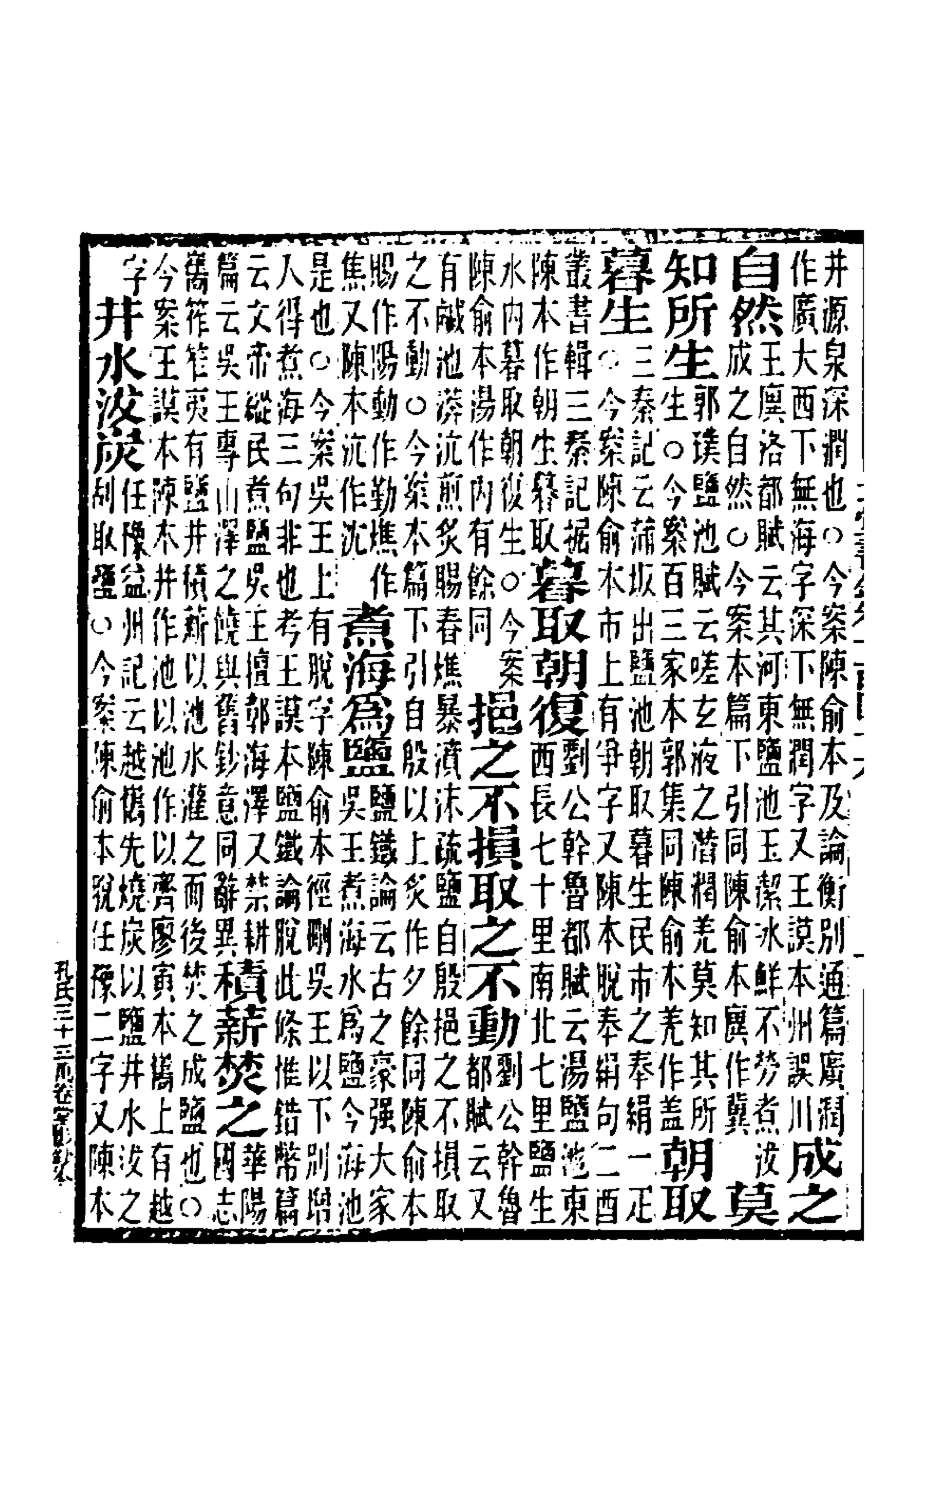 井源泉深潤也○今案陳俞本及論衡別通篇廣潤
作廣大西下無海字深下無潤字又王謨本州誤川
成之
自然
王廙洛都賦云其河東鹽池玉潔冰鮮不勞煮沷
成之自然○今案本篇下引同陳俞本廙作冀
莫
知所生
郭璞鹽池賦云嗟玄液之潛潤羌莫知其所
生○今案百三家本郭集同陳俞本羌作盖
朝取
暮生
三秦記云蒲坂出鹽池朝取暮生民市之奉絹一疋
○今案陳俞本市上有爭字又陳本脫奉絹句二酉
叢書輯三秦記据
陳本作朝生暮取
暮取朝復
劉公幹魯都賦云湯鹽池東
西長七十里南北七里鹽生
水内暮取朝復生○今案
陳俞本湯作内有餘同
挹之不損取之不動
劉公幹魯
都賦云又
有鹹池漭沆煎炙賜春燋暴濆沫疏鹽自殷挹之不損取
之不動○今案本篇下引自殷以上炙作夕餘同陳俞本
賜作陽動作勤燋作
焦又陳本沆作沈
煮海爲鹽
鹽鐵論云古之豪强大家
吳王煮海水爲鹽今海池
是也○今案吳王上有脫字陳俞本徑刪吳王以下別增
人得煮海三句非也考王謨本鹽鐵論脫此條惟錯幣篇
云文帝縱民煮鹽吳王擅鄣海澤又禁耕
篇云吳王專山澤之饒與舊鈔意同辭異
積薪焚之
華陽
國志
嶲筰笮夷有鹽井積薪以池水灌之而後焚之成鹽也○
今案王謨本陳本井作池以池作以齊廖寅本嶲上有越
字
井水沷炭
任豫益州記云越嶲先燒炭以鹽井水沷之
刮取鹽○今案陳俞本脫任豫二字又陳本
孔氏三十三萬卷堂影鈔本